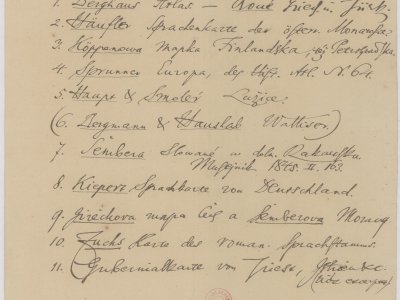 1. Berghaus Atlas —
2. Häufler Sprachenkarte der österr. Monarchie.
3. Köppenova mapka Finlandska,
4. Spruner Europa, des hist. Atl. N. 61.
5. Haupt & Smoleŕ Lužice.
(6. Bergmann & Hauslab
7. Šembera Slované v doln. Rakousku.
Musejník 1845. II. 163.
8. Kiepert Sprachkarte von Deutschland.
9. Jirečkova mapa a Šemberova Moravy
10. Fuchs Karte des roman. Sprachstamms.
11. Gubernialkarte von